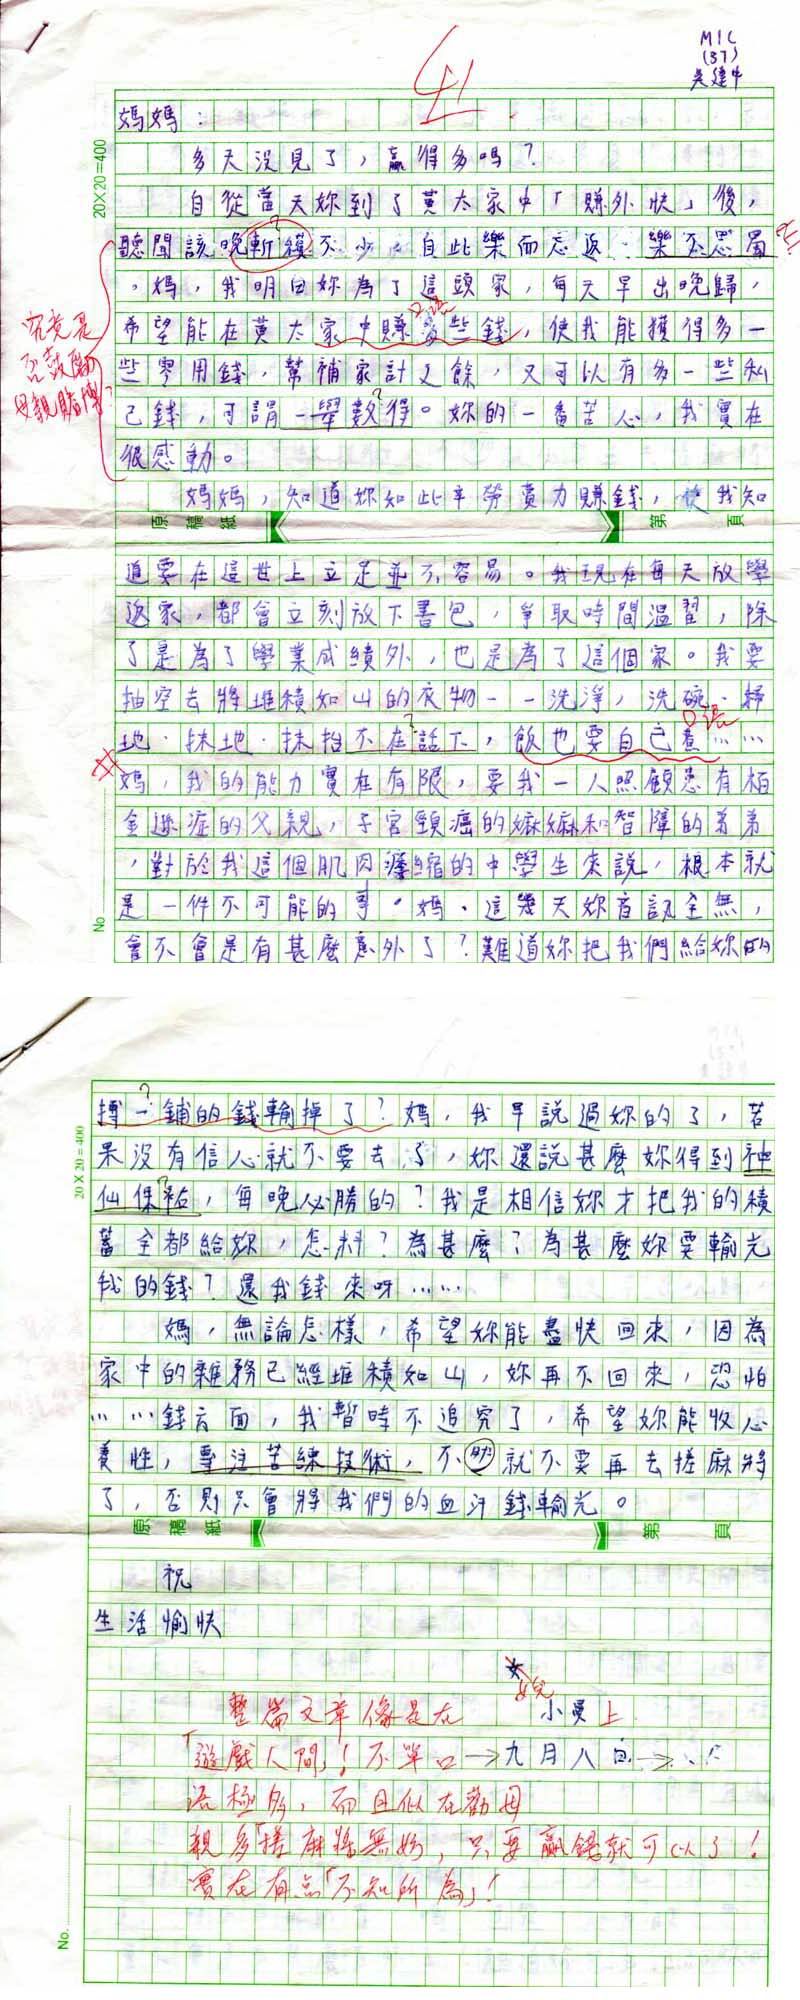 M1C
(37)
吳建中
41
20×20=400
媽媽：
多天沒見了，贏得多嗎？
自從當天妳到了黃太家中「賺外快」後，
聽聞該晚斬獲不少。自此樂而忘返，樂不思蜀
。媽，我明白妳為了這頭家，每天早出晚歸，
口語
希望能在黃太家中賺多些錢，使我能獲得多一
些零用錢，幫補家計之餘，又可以有多一些私
己錢，可謂一舉數得。妳的一番苦心，我實在
很感動。
究竟是
否鼓勵
母親賭博？
媽媽，知道妳如此辛勞賣力賺錢，使我知
原稿紙 第 頁
道要在這世上立足並不容易。我現在每天放學
返家，都會立刻放下書包，爭取時間溫習，除
了是為了學業成績外，也是為了這個家。我要
抽空去將堆積如山的衣物一一洗淨，洗碗、掃
口語
地、抹地、抹抬不在話下，飯也要自己煮……
媽，我的能力實在有限，要我一人照顧患有栢
金遜症的父親，子宮頸癌的嫲嫲和智障的弟弟
，對於我這個肌肉萎縮的中學生來說，根本就
是一件不可能的事。媽，這幾天妳音訊全無，
會不會是有甚麼意外了？難道妳把我們給妳的
No
20×20=400
搏一鋪的錢輸掉了？媽，我早說過妳的了，若
果沒有信心就不要去了，妳還說甚麼妳得到神
仙保祐，每晚必勝的？我是相信妳才把我的積
蓄全都給妳，怎料？為甚麼？為甚麼妳要輸光
我的錢？還我錢來呀……
媽，無論怎樣，希望妳能盡快回來，因為
家中的雜務已經堆積如山，妳再不回來，恐怕
……錢方面，我暫時不追究了，希望妳能收心
養性，專注苦練技術，不然就不要再去搓麻將
了，否則只會將我們的血汗錢輸光。
原稿紙 第 頁
祝
生活愉快
女兒
小曼上
九月八日
整篇文章像是在
「遊戲人間」！不單口
語極多，而且似在勸母
親多「搓麻將無妨，只要贏錢就可以了！
實在有點「不知所為」！
No.